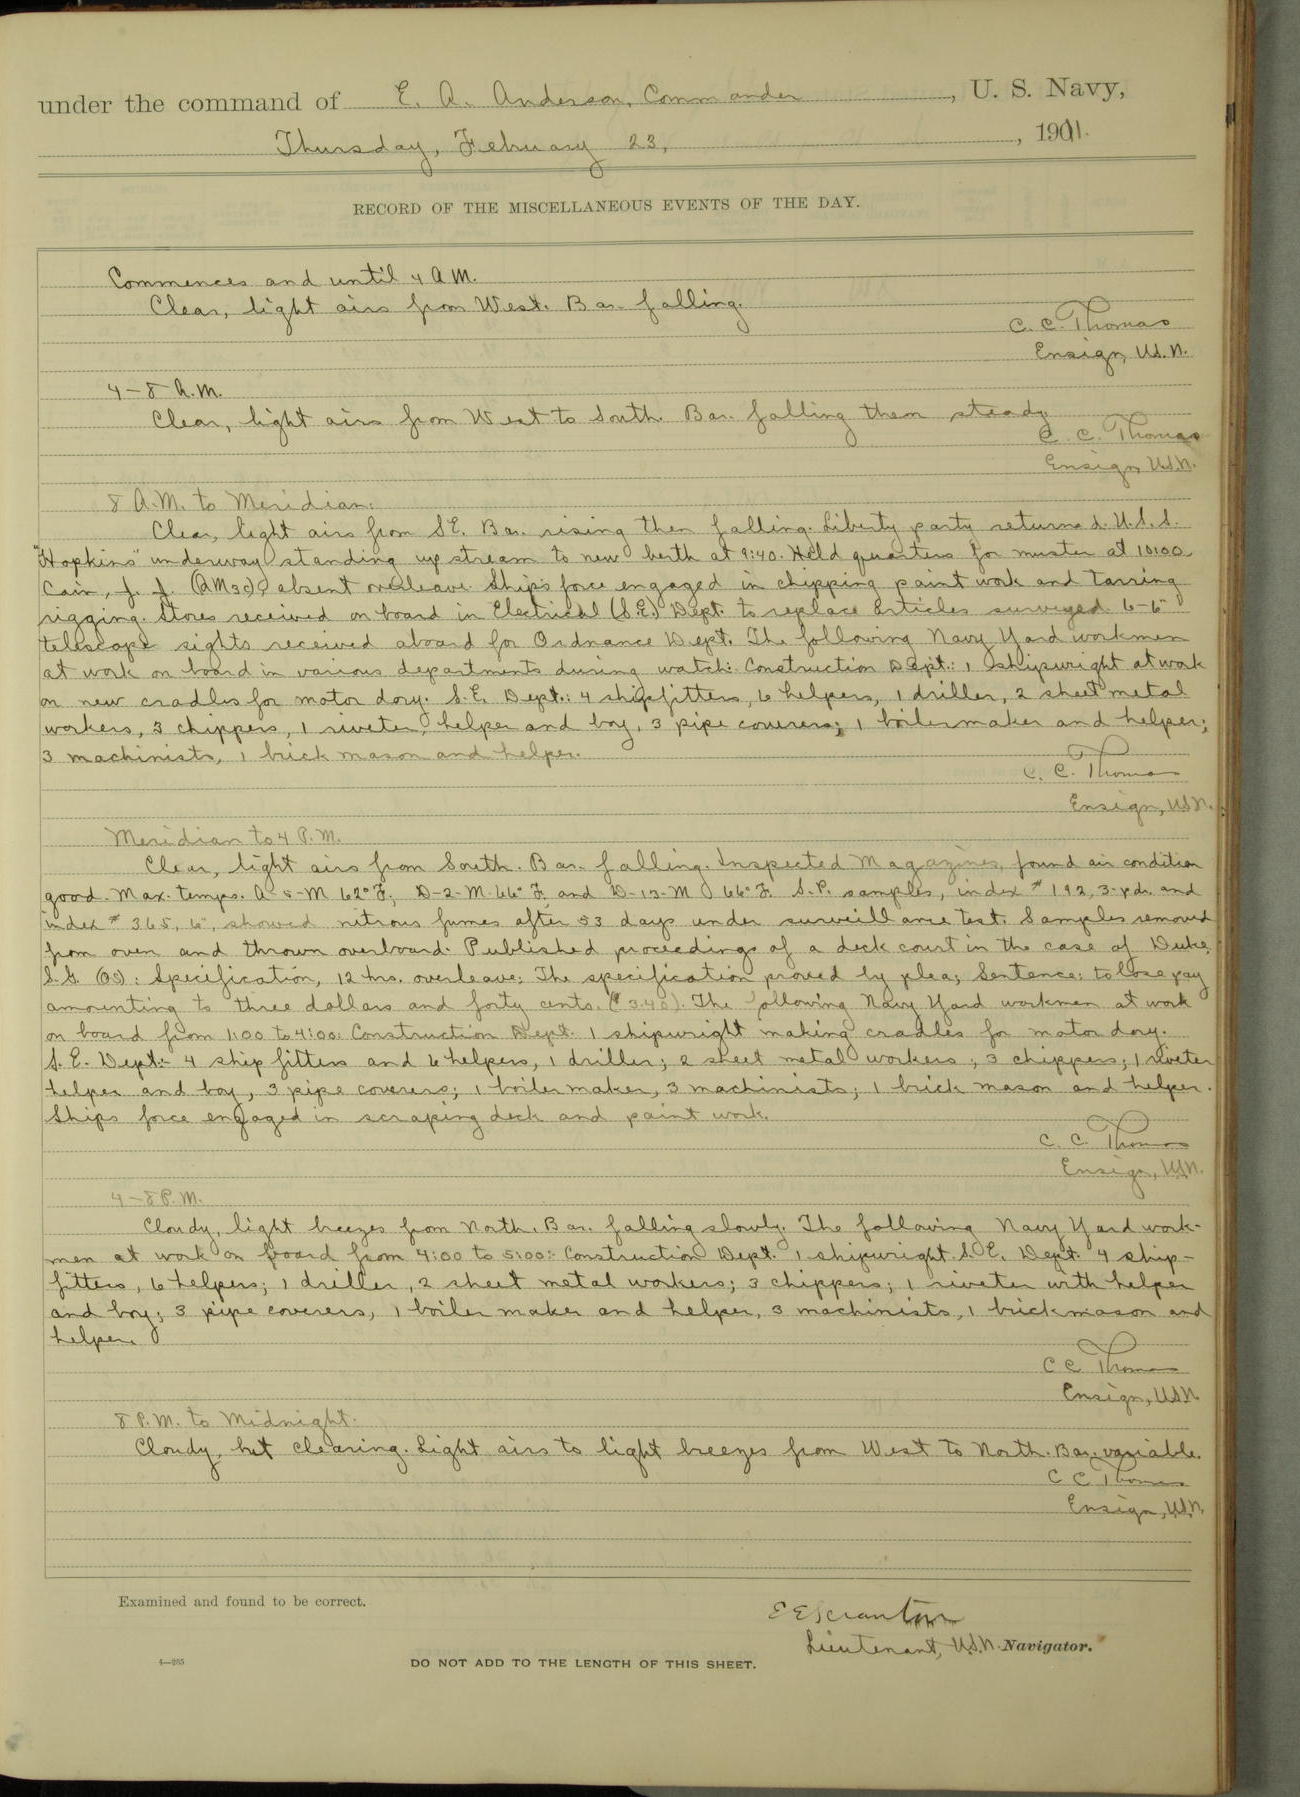 under the command of E. A. Anderson, Commander, U. S. Navy,
Thursday, February 23, 1911.
RECORD OF THE MISCELLANEOUS EVENTS OF THE DAY.
Commences and until 4 A.M.
Clear, light airs from West. Bar. falling.
C. C. Thomas
Ensign, U.S.N.
4-8 A.M.
Clear, light airs from West to South. Bar. falling then steady
C. C. Thomas
Ensign, U.S.N.
8 A.M. to Meridian.
Clear, light airs from S.E. Bar. rising then falling. Liberty party returned. U.S.S.
"Hopkins" underway standing up stream to new berth at 9:40. Held quarters for muster at 10:00.
Cain, J. J. (AM3c) absent overleave. Ships force engaged in chipping paint work and tarring
rigging. Stores received on board in Electrical (S.E.) Dept. to replace articles surveyed. 6-6"
telescope sights received aboard for Ordnance Dept. The following Navy Yard workmen
at work on board in various departments during watch: Construction Dept.: 1 shipwright at work
on new cradles for motor dory. S.E. Dept.: 4 shipfitters, 6 helpers, 1 driller, 2 sheet metal
workers, 3 chippers, 1 riveter, helper and boy, 3 pipe coverers; 1 boilermaker and helper;
3 machinists, 1 brick mason and helper.
C. C. Thomas
Ensign, U.S.N.
Meridian to 4 P.M.
Clear, light airs from South. Bar. falling. Inspected Magazines, found air condition
good. Max. temps. A-5-M 62°F, D-2-M 66°F, and D-13-M 66°F. S.P. samples, index #192, 3-pdr. and
index #365, 6", showed nitrous fumes after 53 days under surveillance test. Samples removed
from oven and thrown overboard. Published proceedings of a deck court in the case of Duke,
S.G. (OS): Specification, 12 hrs. overleave; The specification proved by plea; Sentence: to lose pay
amounting to three dollars and forty cents. ($3.40). The following Navy Yard workmen at work
on board from 1:00 to 4:00: Construction Dept. 1 shipwright making cradles for motor dory.
S.E. Dept:- 4 ship fitters and 6 helpers, 1 driller; 2 sheet metal workers; 3 chippers; 1 riveter
helper and boy, 3 pipe coverers; 1 boiler maker, 3 machinists; 1 brick mason and helper.
Ships force engaged in scraping deck and paint work.
C. C. Thomas
Ensign, U.S.N.
4-8 P.M.
Cloudy, light breezes from North. Bar. falling slowly. The following Navy Yard work-
men at work on board from 4:00 to 5:00:- Construction Dept. 1 shipwright. S.E. Dept. 4 ship-
fitters, 6 helpers; 1 driller, 2 sheet metal workers; 3 chippers; 1 riveter with helper
and boy; 3 pipe coverers, 1 boiler maker and helper, 3 machinists, 1 brick mason and
helper.
C C Thomas
Ensign, U.S.N.
8 P.M. to Midnight.
Cloudy, but clearing. Light airs to light breezes from West to North. Bar. variable.
C C Thomas
Ensign, U.S.N.
Examined and found to be correct.
E E Scranton
Lieutenant, U.S.N. Navigator.
4—265
DO NOT ADD TO THE LENGTH OF THIS SHEET.